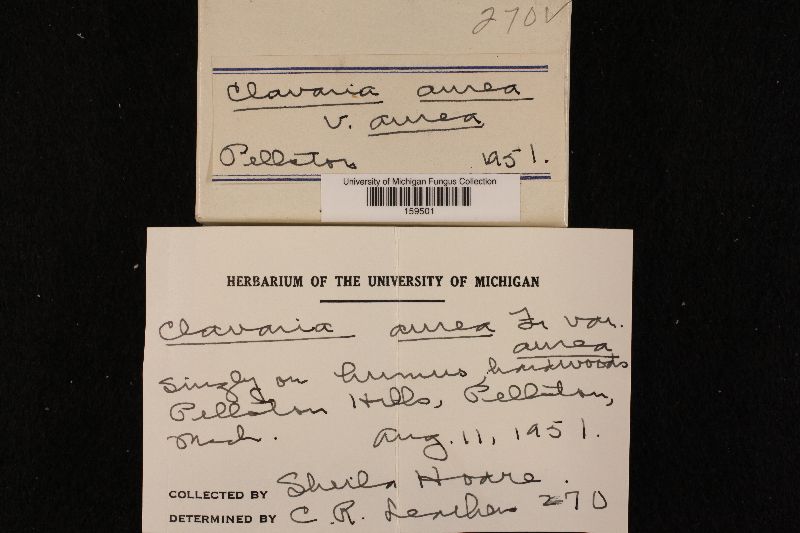 270V
Clavaria aurea
v. aurea
Pellston 1951.
University of Michigan Fungus Collection
159501
HERBARIUM OF THE UNIVERSITY OF MICHIGAN
Clavaria aurea Fr var.
aurea
Singly on humus, hardwoods
Pellston Hills, Pellston,
Mich. Aug. 11, 1951.
COLLECTED BY Sheila Hoare.
DETERMINED BY C. R. Leathers 270